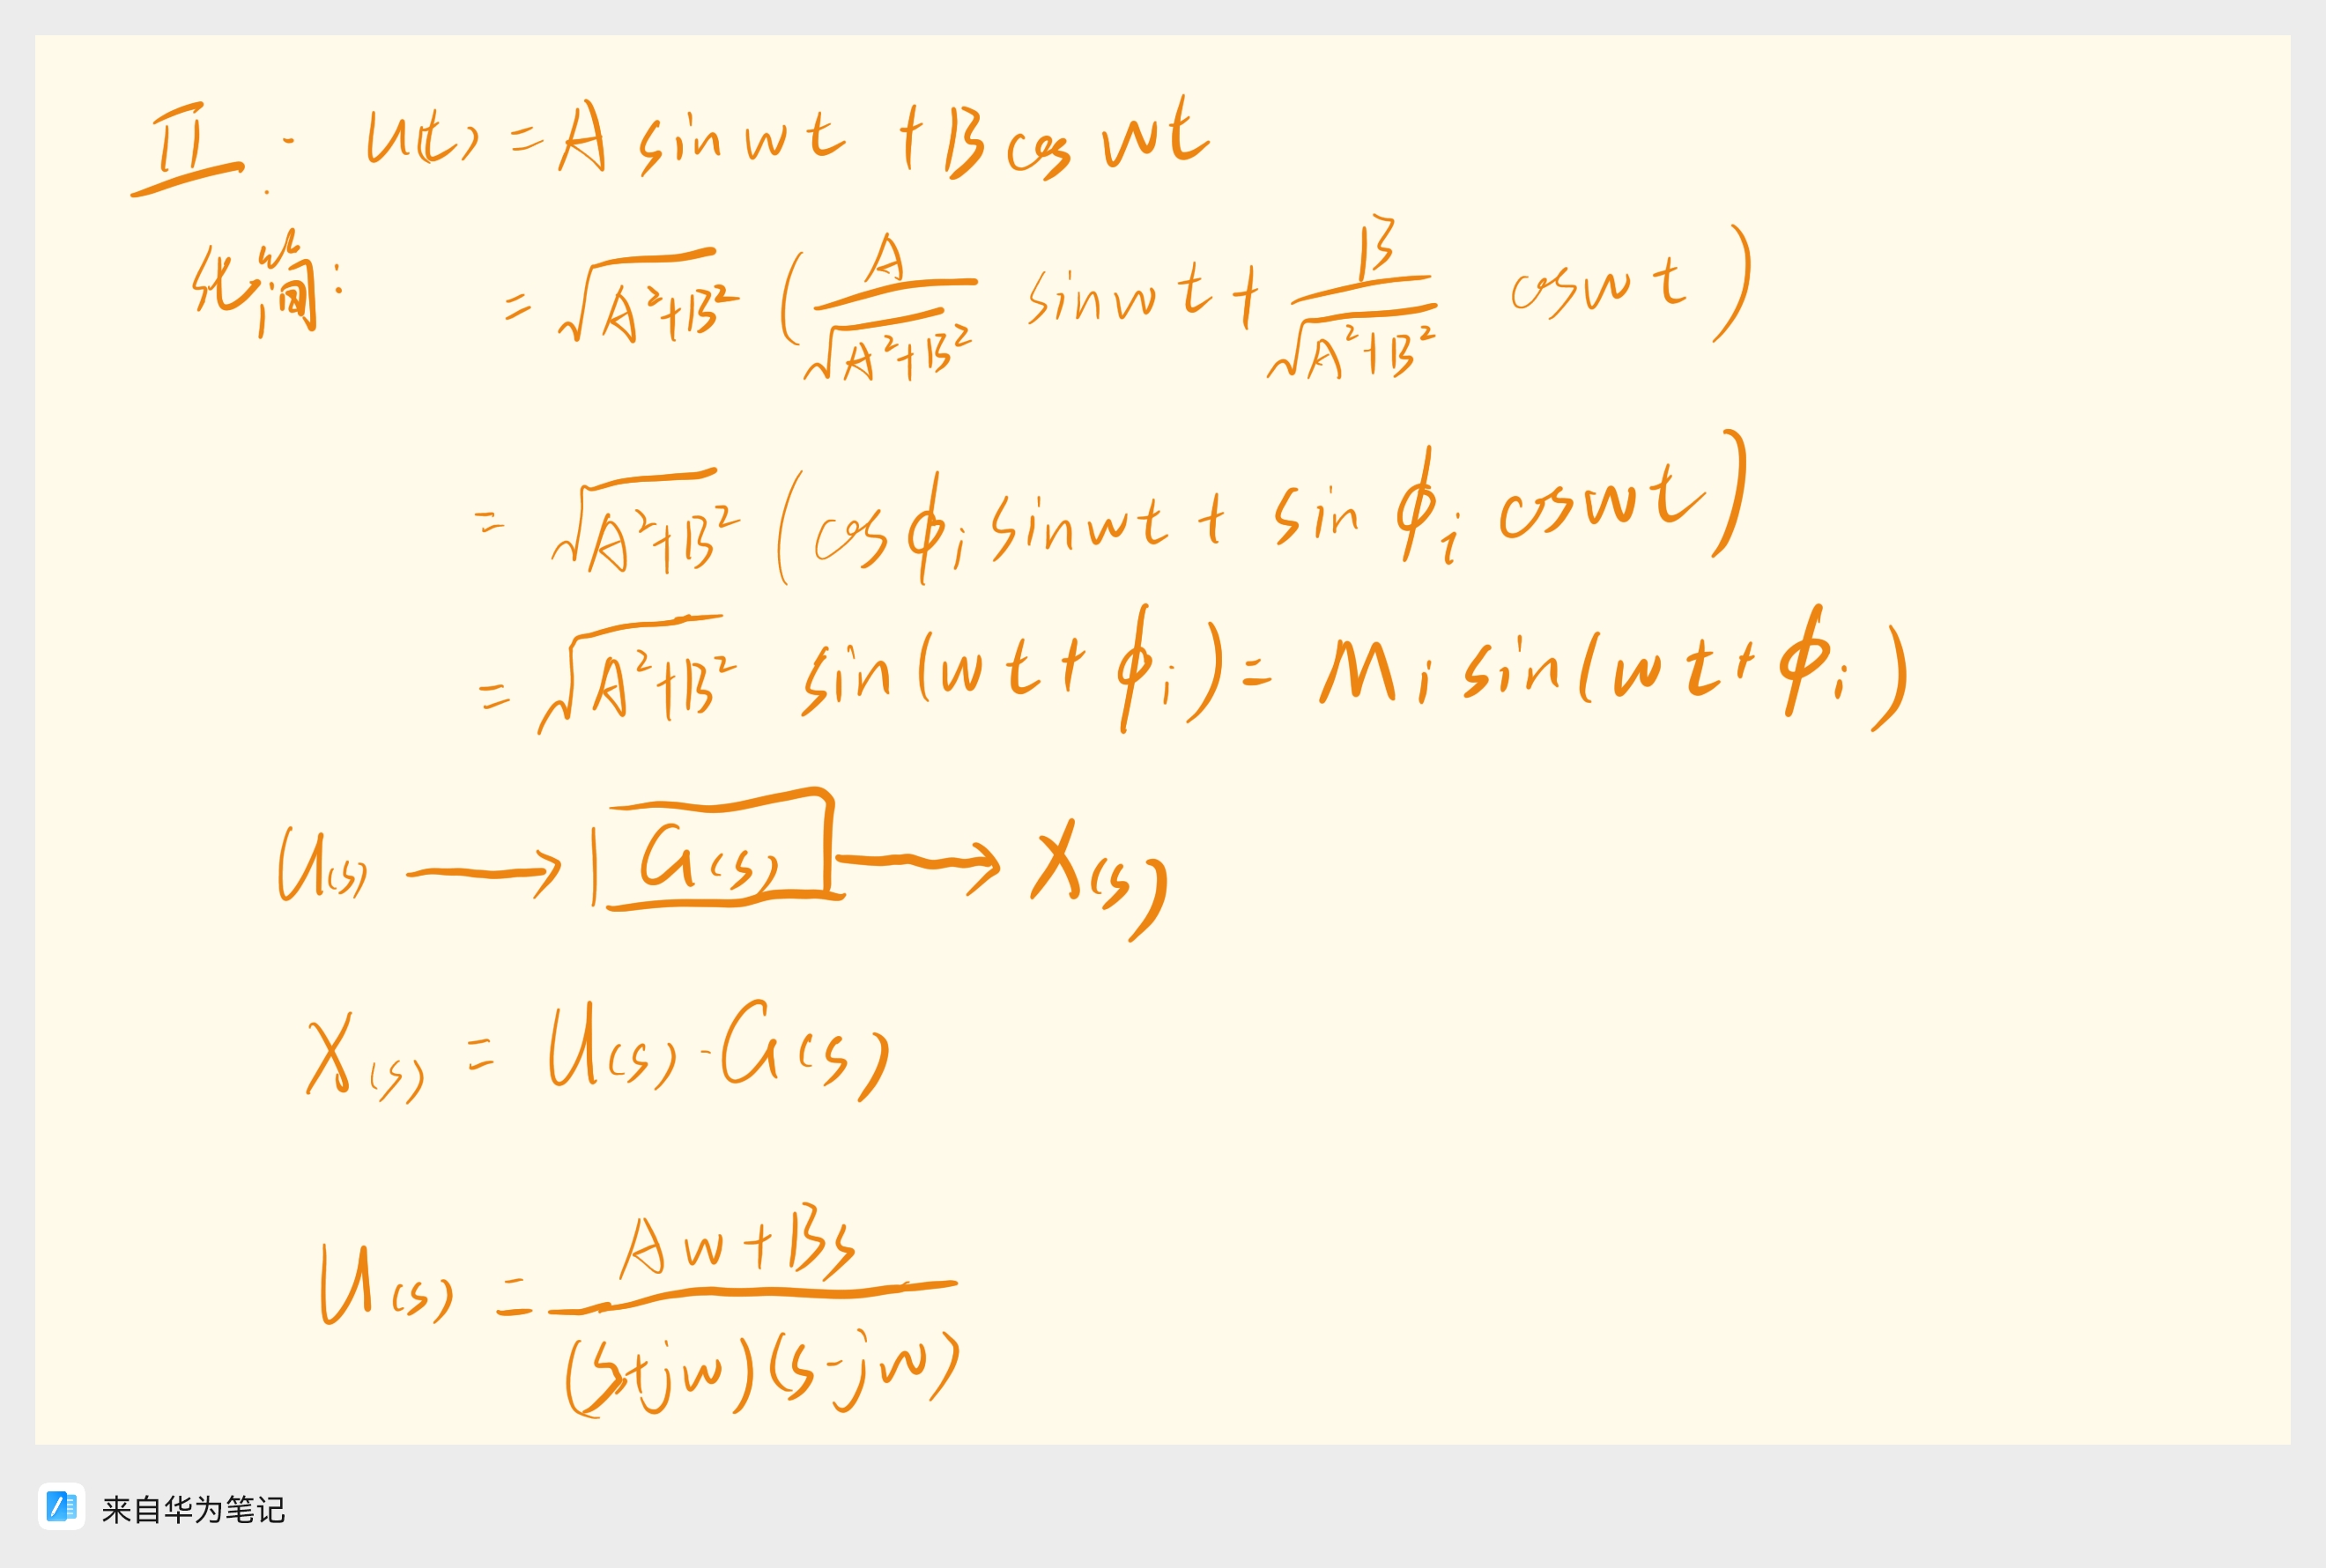 II. u(t) = A sin wt + B cos wt
化简: = √(A²+B²) ( A/√(A²+B²) sin wt + B/√(A²+B²) cos wt )
= √(A²+B²) (cos ϕi sin wt + sin ϕi cos wt)
= √(A²+B²) sin(wt + ϕi) = Mi sin(wt + ϕi)
U(s) → G(s) → X(s)
X(s) = U(s) · G(s)
U(s) = (Aw + Bs) / ((s+jw)(s-jw))
来自华为笔记